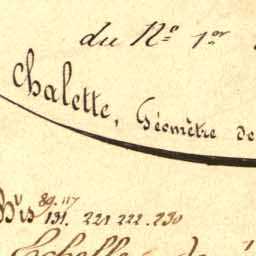 du N° 1er
Chalette, Géomètre de
89. 117
Bis 131. 221 222. 230
Echelle de